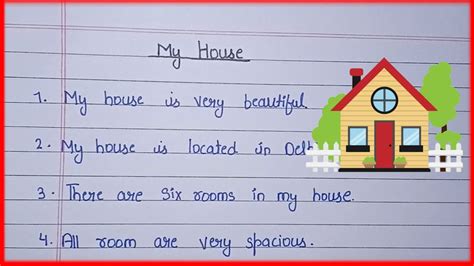 My House
1. My house is very beautiful.
2. My house is located in Delh
3. There are Six rooms in my house.
4. All room are very spacious.